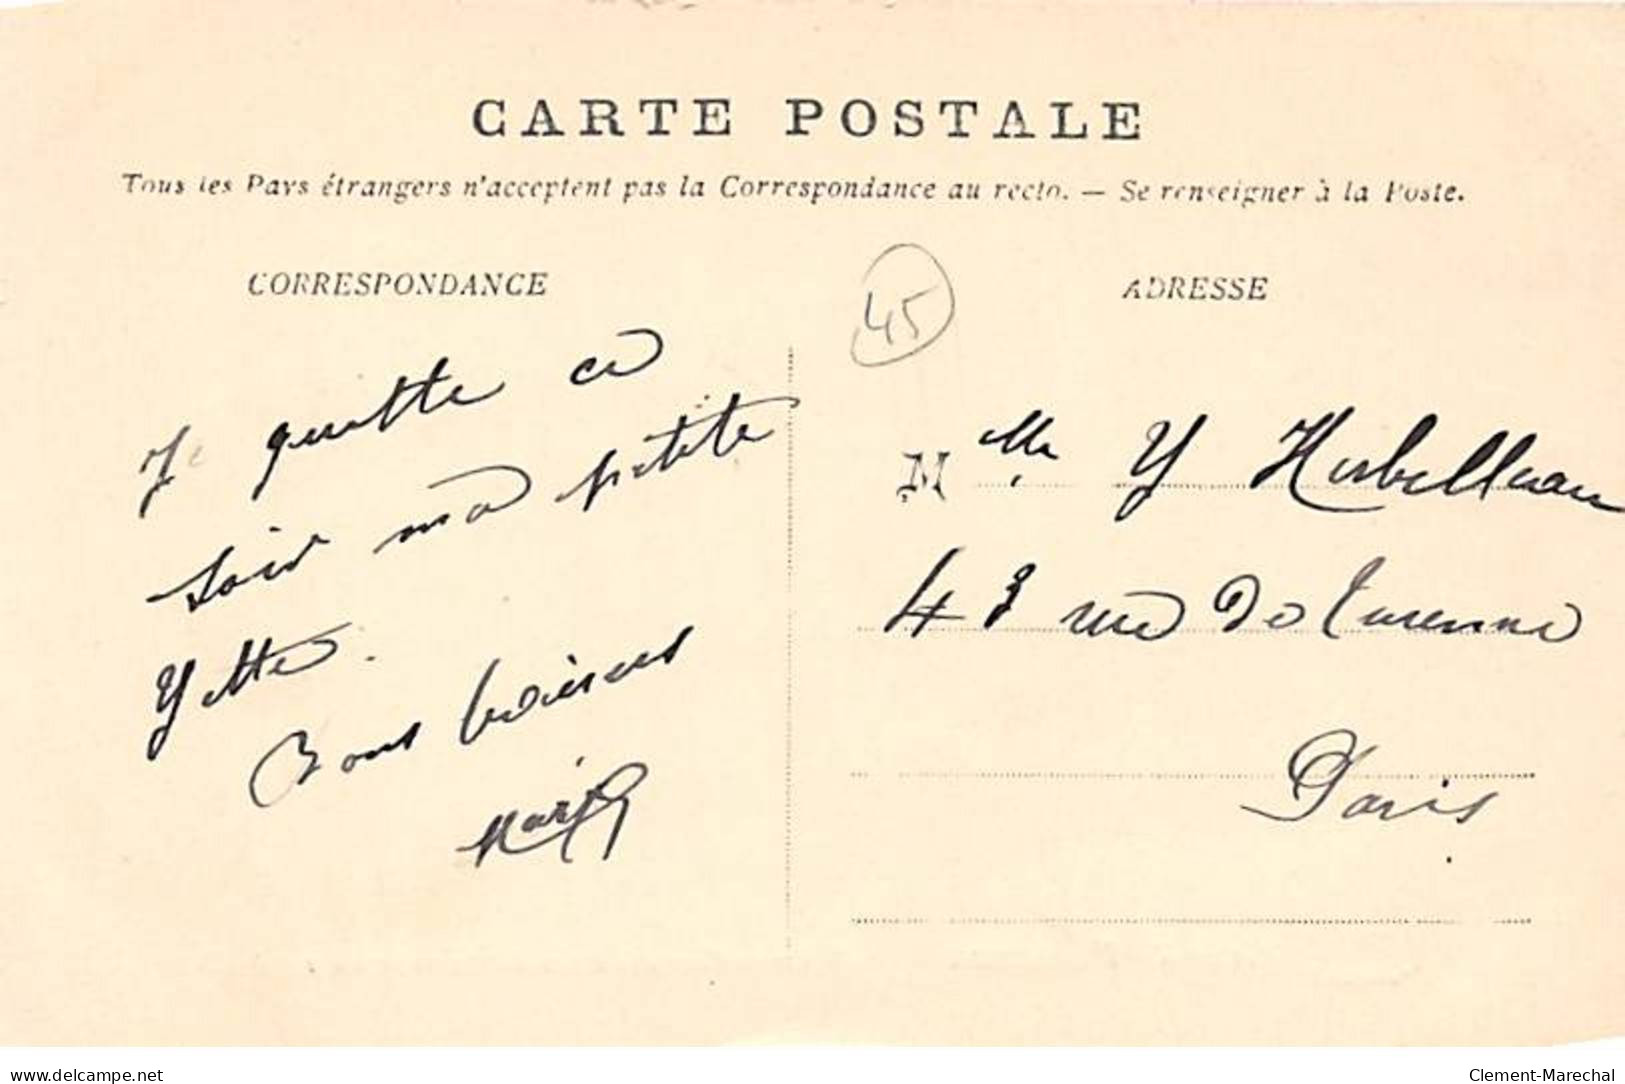 CARTE POSTALE
Tous les Pays étrangers n'acceptent pas la Correspondance au recto. — Se renseigner à la Poste.
CORRESPONDANCE
Je quitte ce
soir ma petite
Yette.
Bons baisers
ADRESSE
45
Melle Y Herbelleau
43 rue de Turenne
Paris
www.delcampe.net
Clement-Marechal